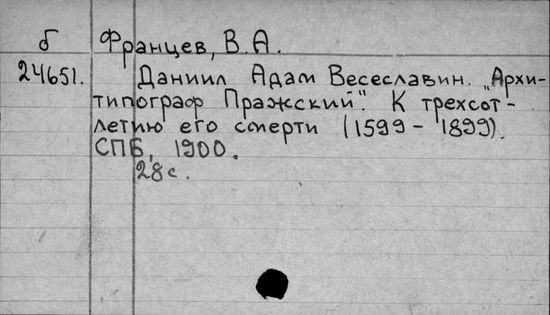 б Францев, В.А.
24651. Даниил Адам Весеславин. „Архи-
типограф Пражский". К трехсот-
летию его смерти (1599 - 1899).
СПБ, 1900.
28с.